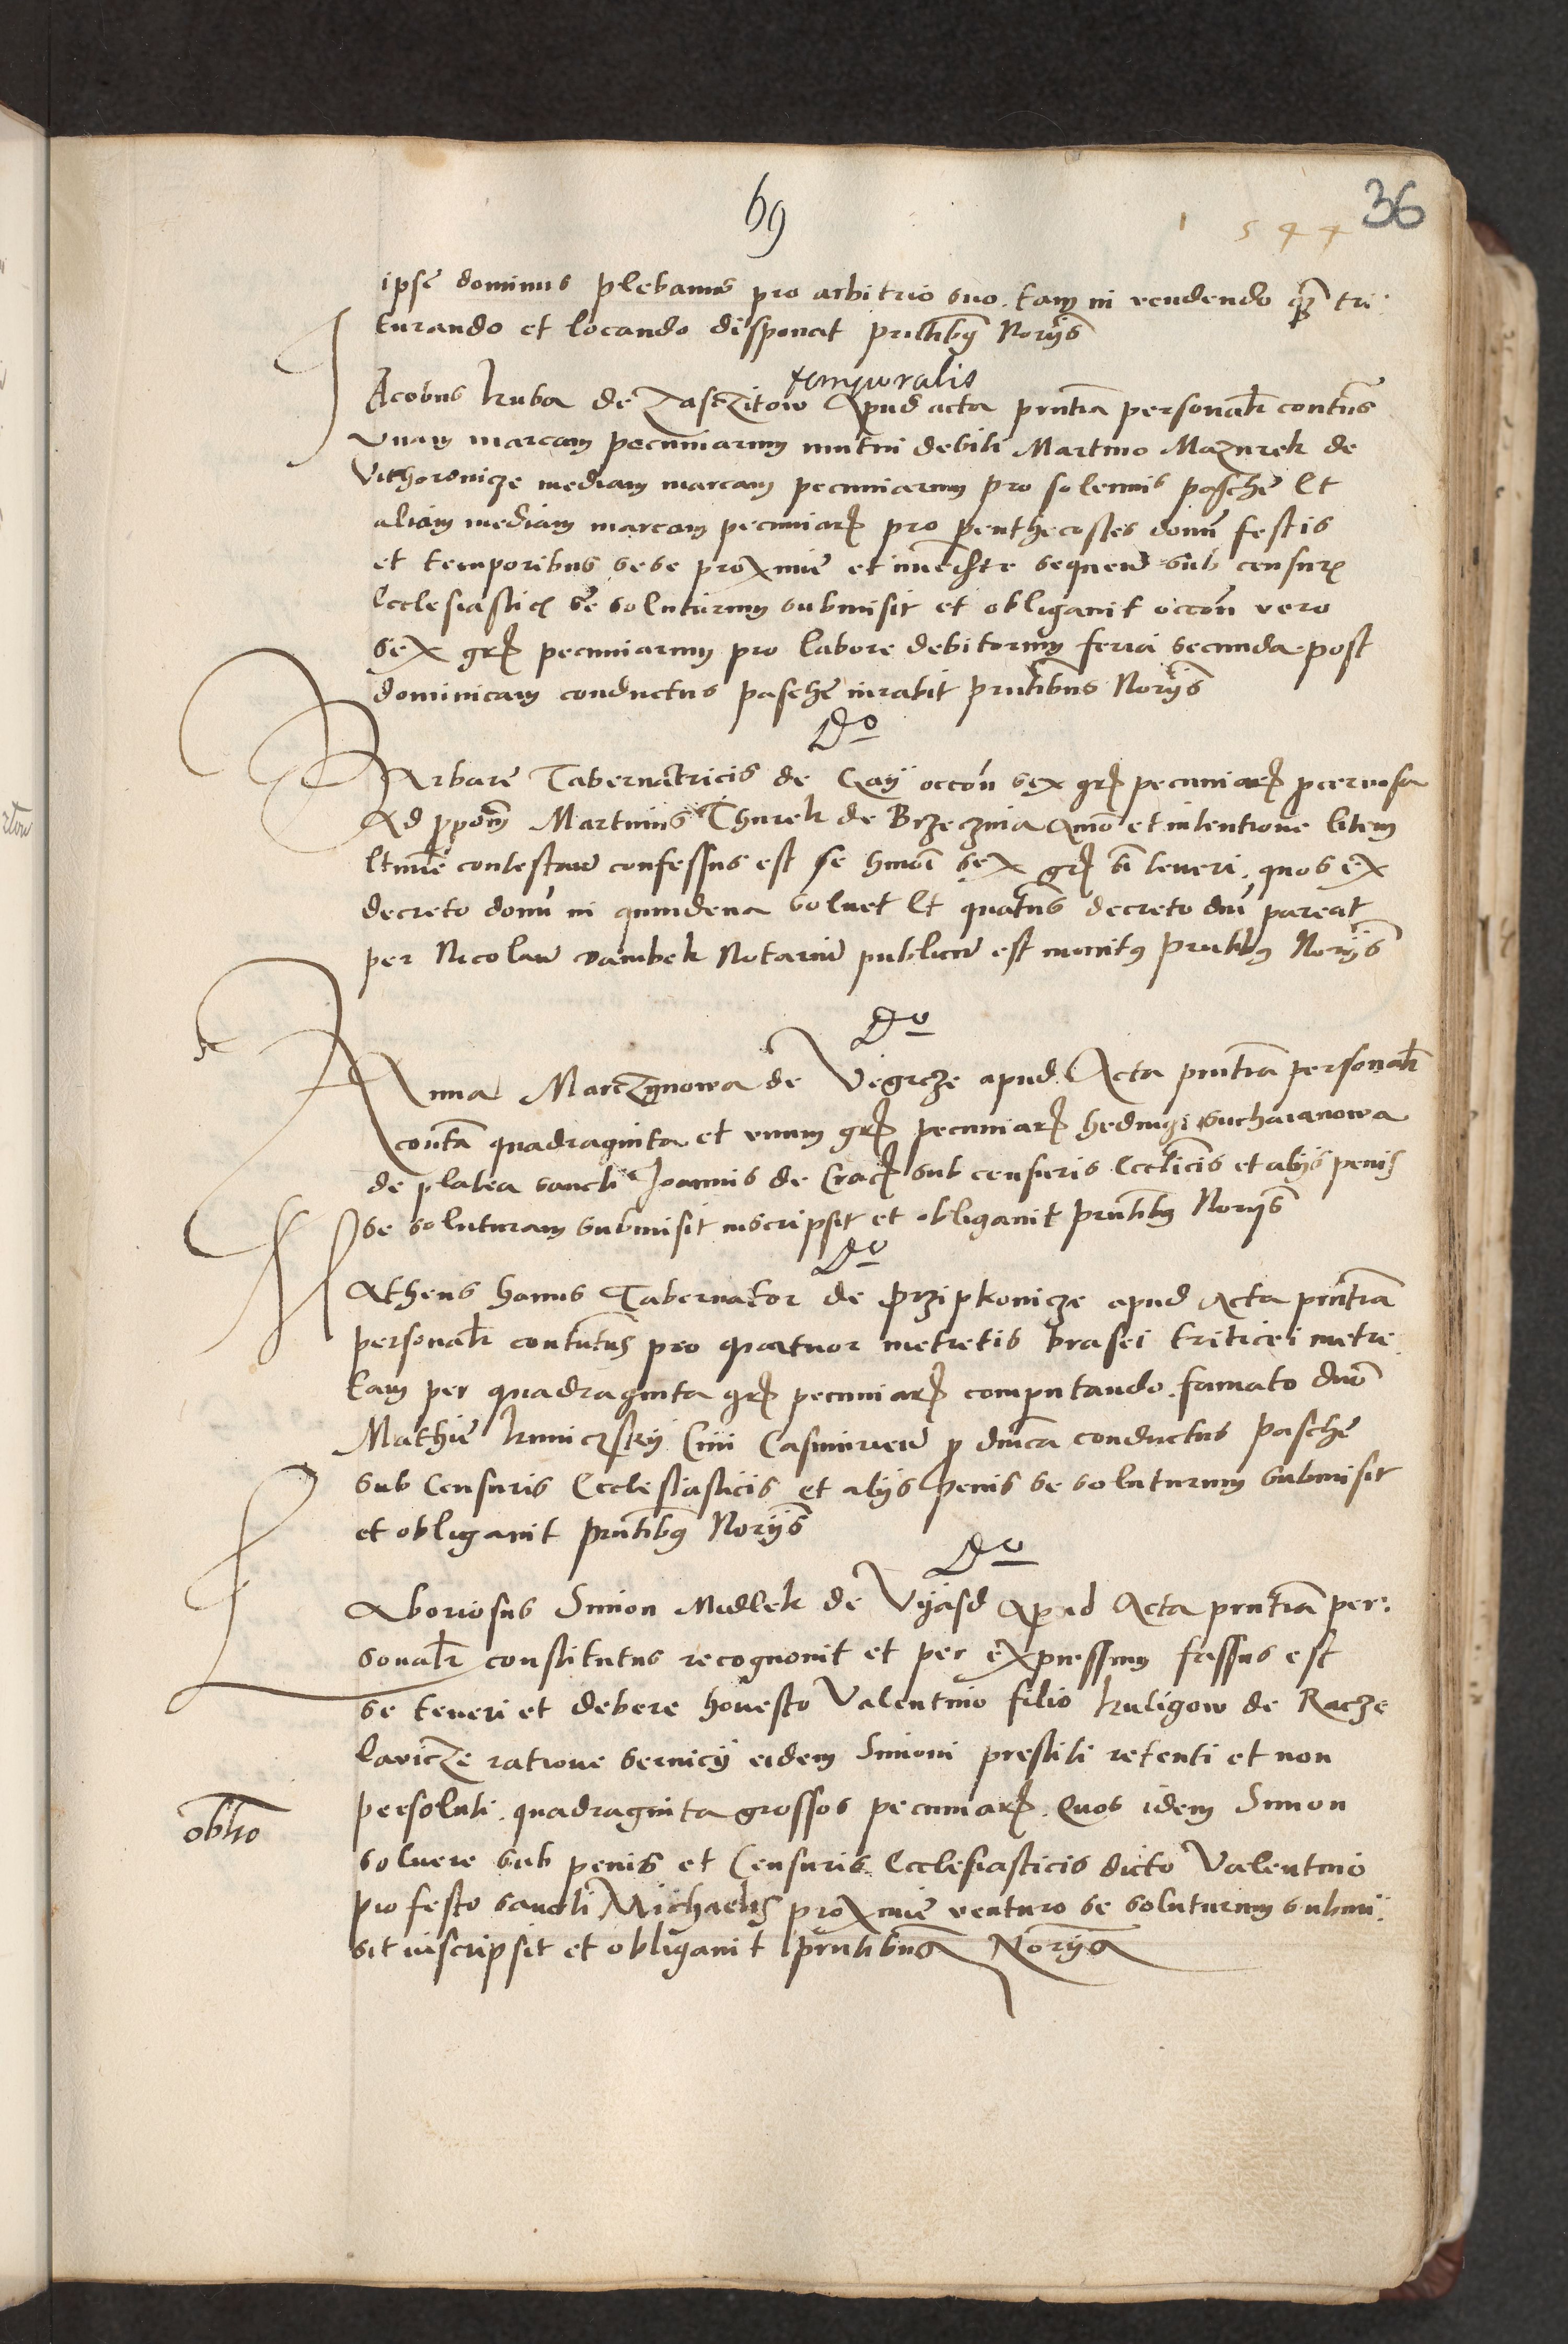 69
1544
36
ipse dominus plebanus pro arbitrio suo tam in vendendo q̃ tri:
turando et locando disponat pr̃ntibꝫ Norijs
temporalis
Jacobus kuba de Zasczitow Apud acta pr̃ntia personalr̃ contñs
vnam marcam pecuniarum mutui debiti Martino Mazurek de
Vithoronicze mediam marcam pecuniarum pro solennis pasche Et
aliam mediam marcam pecuniarꝝ pro penthecostes domñ festis
et temporibus sese proxime et immediate sequeñ sub censurꝭ
Ecclesiasticꝭ se soluturum submisit et obligauit occõn vero
sex grꝭ pecuniarum pro labore debitorum feria secunda post
dominicam conductus pasche iurabit pr̃ntibus Norijs
Do
Barbare Tabernatricis de Gay occõn sex grꝭ pecuniarꝝ pro ceruisia
Ad proponẽ Martinus Thurek de Brzeznia aĩo et intentione litem
Ltime contestañ confessus est se hmõi sex grꝭ ei teneri, quos ex
decreto domñ in quindena soluet Et quatens decreto dñi pareat
per Nicolaũ dambek Notariũ publicũ est monitꝰ pr̃ntibꝫ Norijs
Do
Anna Marczynowa de Vegrcze apud Acta pr̃ntia personalr̃
contã quadraginta et vnum grꝭ pecuniarꝝ hedwigi suchaianowa
de platea sancti Joannis de Cracꝭ sub censuris Ecclicis et alijs penis
se soluturam submisit inscripsit et obligauit pr̃ntibꝫ Norijs
Do
Matheus hanus Tabernator de Przipkonicze apud Acta pr̃ntia
personalr̃ contutus pro quatuor metretis brasei triticei metre
tam per quadraginta grꝭ pecuniarꝝ computando famato dño
Mathie kuniczskij Ciui Casimirieñ pro dñica conductus Pasche
sub Censuris Ecclesiasticis et alijs penis se soluturum submisit
et obligauit pr̃ntibꝫ Norijs
Do
Laboriosus Simon Midlek de Vyasd Apud Acta pr̃ntia per:
sonalr̃ constitutus recognouit et per expressum fassus est
se teneri et debere honesto Valentino filio kuligow de Racze
lauicze ratione seruicij eidem Simoni prestiti retenti et non
persoluti quadraginta grossos pecuniarꝝ Quos idem Simon
obl̃io
soluere sub penis et Censuris Ecclesiasticis dicto Valentino
pro festo sancti Michaelis proxime venturo se soluturum submi:
sit inscripsit et obligauit pr̃ntibus Norijs